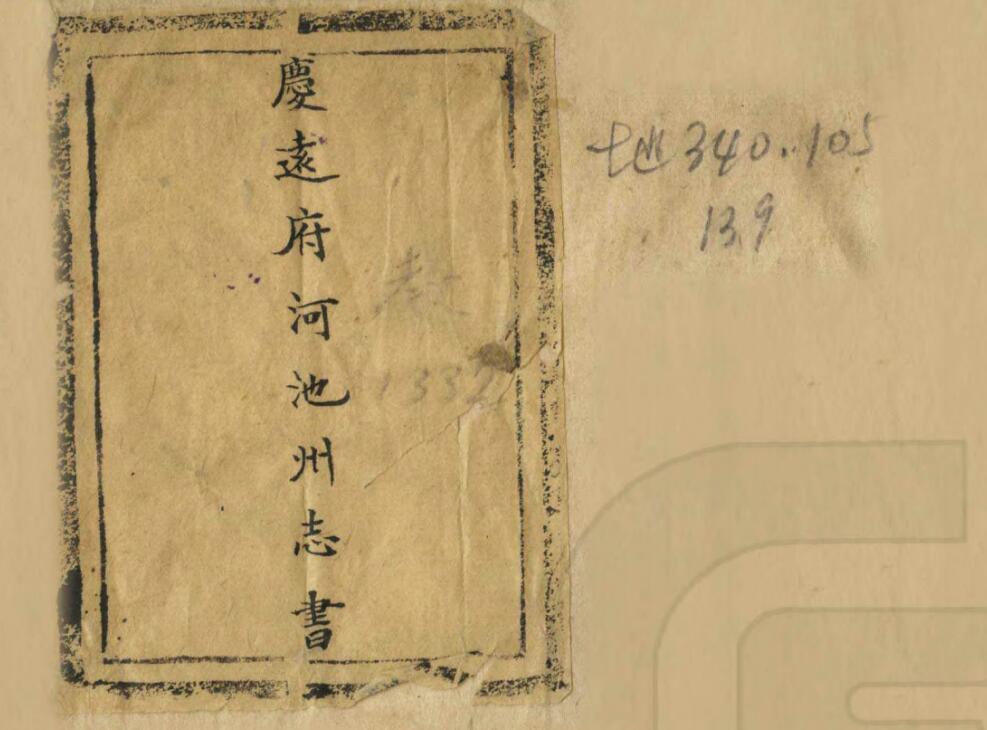 慶遠府河池州志書
地340.105
139
1332